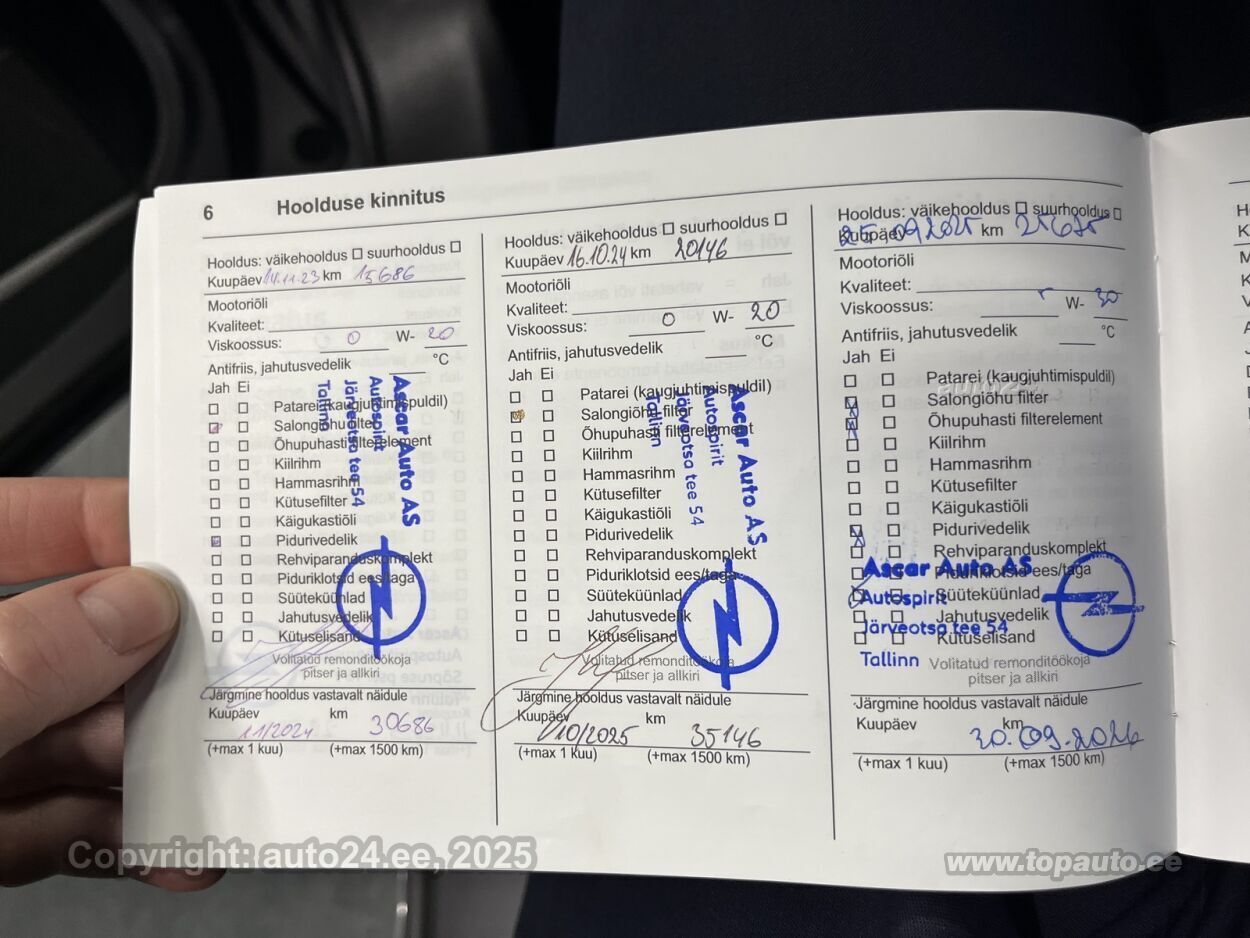 6 Hoolduse kinnitus
Hooldus: väikehooldus ☐ suurhooldus ☐
Kuupäev 14.11.23 km 15686
Mootoriõli
Kvaliteet:
Viskoossus: 0 W- 20
Antifriis, jahutusvedelik °C
Jah Ei
Patarei (kaugjuhtimispuldil)
Salongiõhu filter
Õhupuhasti filterelement
Kiilrihm
Hammasrihm
Kütusefilter
Käigukastiõli
Pidurivedelik
Rehviparanduskomplekt
Piduriklotsid ees/taga
Süüteküünlad
Jahutusvedelik
Kütuselisand
Ascar Auto AS
Autospirit
Järveotsa tee 54
Tallinn
Volitatud remonditöökoja
pitser ja allkiri
Järgmine hooldus vastavalt näidule
Kuupäev km
11/2024 30686
(+max 1 kuu) (+max 1500 km)
Hooldus: väikehooldus ☐ suurhooldus ☐
Kuupäev 16.10.24 km 20146
Mootoriõli
Kvaliteet:
Viskoossus: 0 W- 20
Antifriis, jahutusvedelik °C
Jah Ei
Patarei (kaugjuhtimispuldil)
Salongiõhu filter
Õhupuhasti filterelement
Kiilrihm
Hammasrihm
Kütusefilter
Käigukastiõli
Pidurivedelik
Rehviparanduskomplekt
Piduriklotsid ees/taga
Süüteküünlad
Jahutusvedelik
Kütuselisand
Ascar Auto AS
Autospirit
Järveotsa tee 54
Tallinn
Volitatud remonditöökoja
pitser ja allkiri
Järgmine hooldus vastavalt näidule
Kuupäev km
10/2025 35146
(+max 1 kuu) (+max 1500 km)
Hooldus: väikehooldus ☐ suurhooldus ☐
Kuupäev 25.09.2025 km 25675
Mootoriõli
Kvaliteet:
Viskoossus: W- 30
Antifriis, jahutusvedelik °C
Jah Ei
Patarei (kaugjuhtimispuldil)
Salongiõhu filter
Õhupuhasti filterelement
Kiilrihm
Hammasrihm
Kütusefilter
Käigukastiõli
Pidurivedelik
Rehviparanduskomplekt
Piduriklotsid ees/taga
Süüteküünlad
Jahutusvedelik
Kütuselisand
Ascar Auto AS
Autospirit
Järveotsa tee 54
Tallinn
Volitatud remonditöökoja
pitser ja allkiri
Järgmine hooldus vastavalt näidule
Kuupäev km
30.09.2026
(+max 1 kuu) (+max 1500 km)
Copyright: auto24.ee, 2025
www.topauto.ee